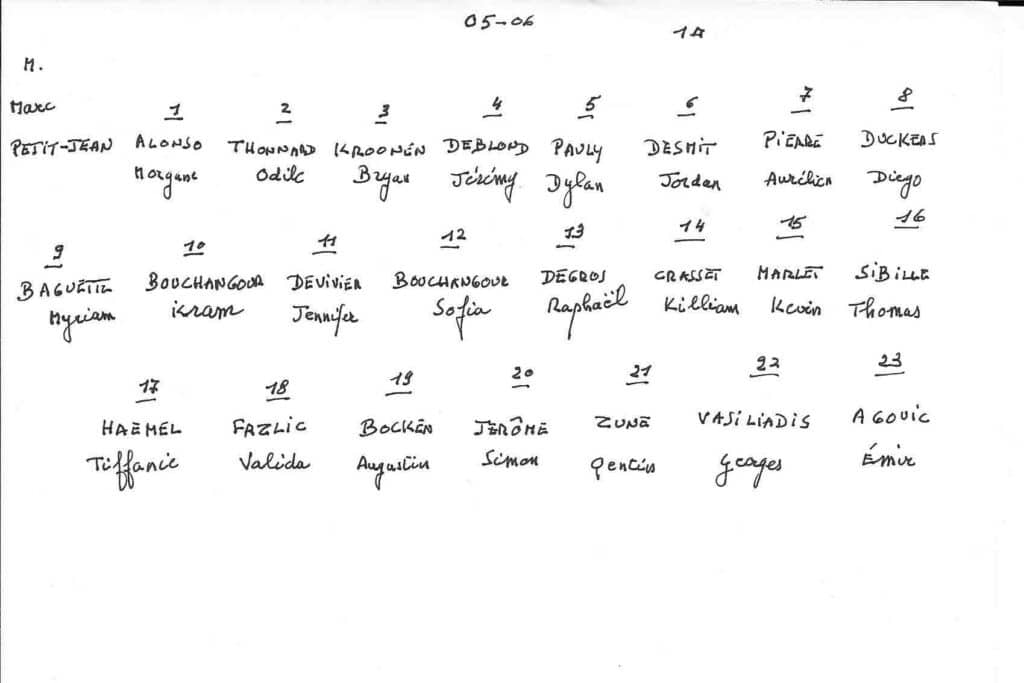 05-06
1A
M.
Marc 1 2 3 4 5 6 7 8
PETIT-JEAN ALONSO THONNARD KROONEN DEBLOND PAULY DESMIT PIERRE DUCKERS
Morgane Odile Bryan Jérémy Dylan Jordan Aurélien Diego
9 10 11 12 13 14 15 16
BAGUETTE BOUCHANGOUR DEVIVIER BOUCHANGOUR DEGROS GRASSET MARLET SIBILLE
Myriam ikram Jennifer Sofia Raphaël Killiam Kevin Thomas
17 18 19 20 21 22 23
HAEMEL FAZLIC BOCKEN JERÔME ZUNE VASILIADIS AGOVIC
Tiffanie Valida Augustin Simon Qentin Georges Émir